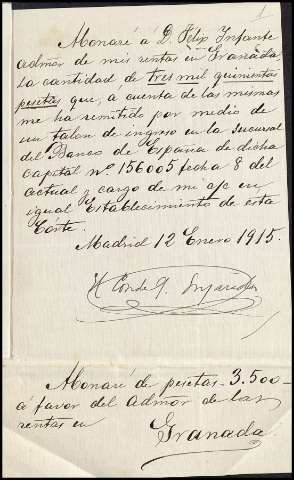 1
Abonaré á D. Felix Infante
admor de mis rentas en Granada
la cantidad de tres mil quinientas
pesetas que, á cuenta de las mismas
me ha remitido por medio de
un talon de ingreso en la sucursal
del Banco de España de dicha
capital nº. 156005 fecha 8 del
actual y cargo de mi c/c en
igual Establecimiento de esta
Córte.
Madrid 12 Enero 1915.
El Conde
Abonaré de pesetas 3.500
á favor del admor de las
rentas en
Granada.